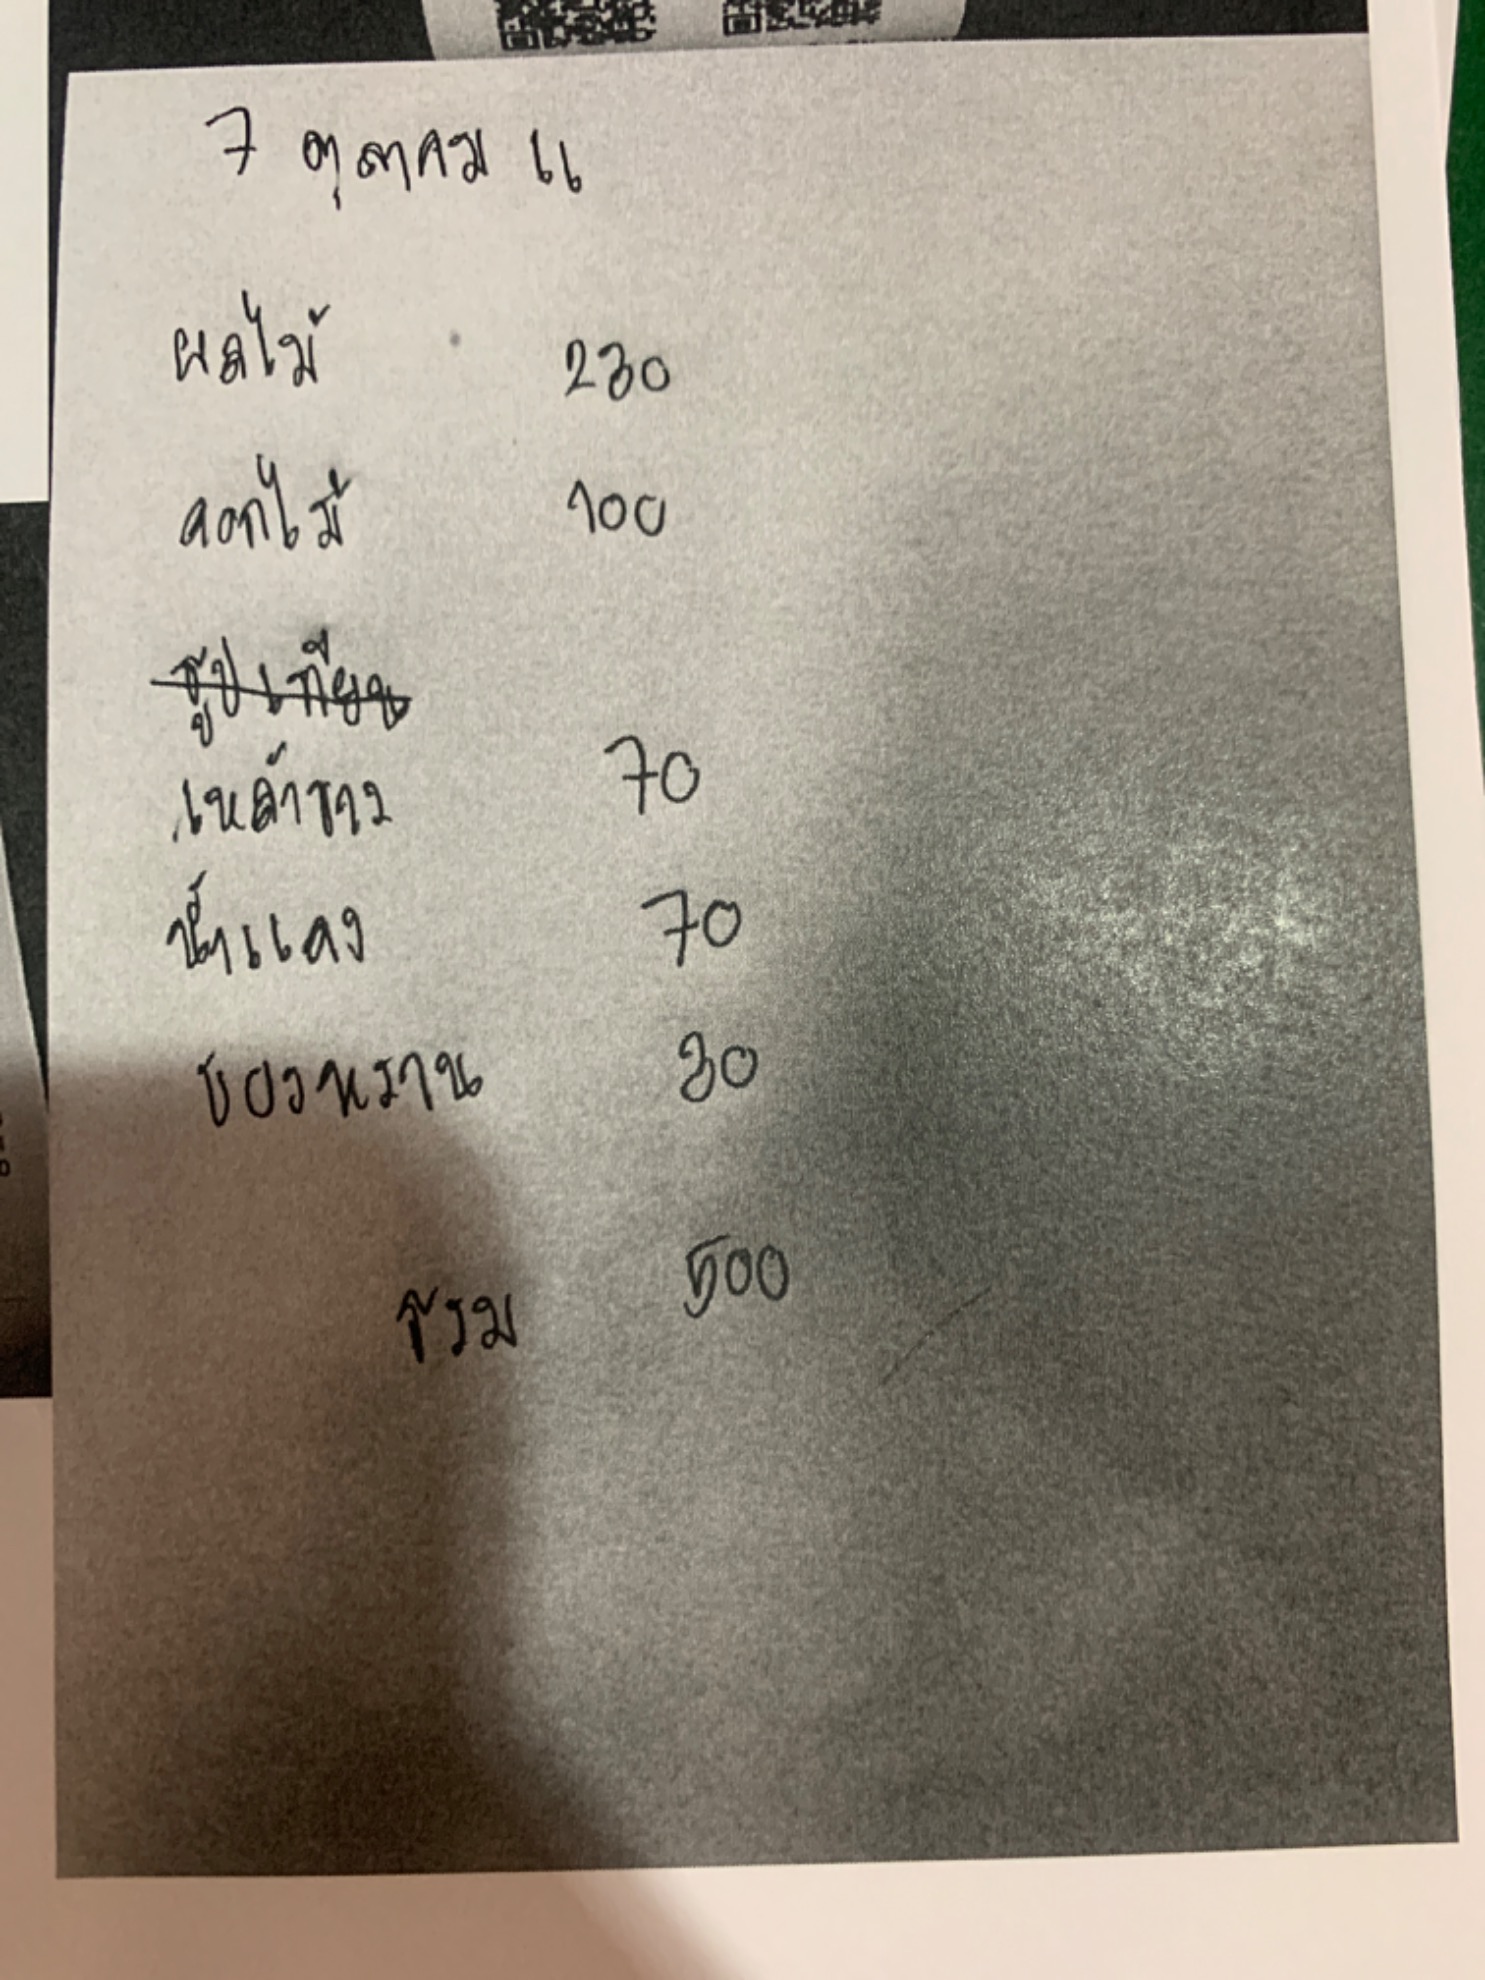 7 ตุลาคม 66
ผลไม้ 230
ดอกไม้ 100
ธูปเทียน
เหล้าขาว 70
น้ำแดง 70
ของหวาน 30
รวม 500